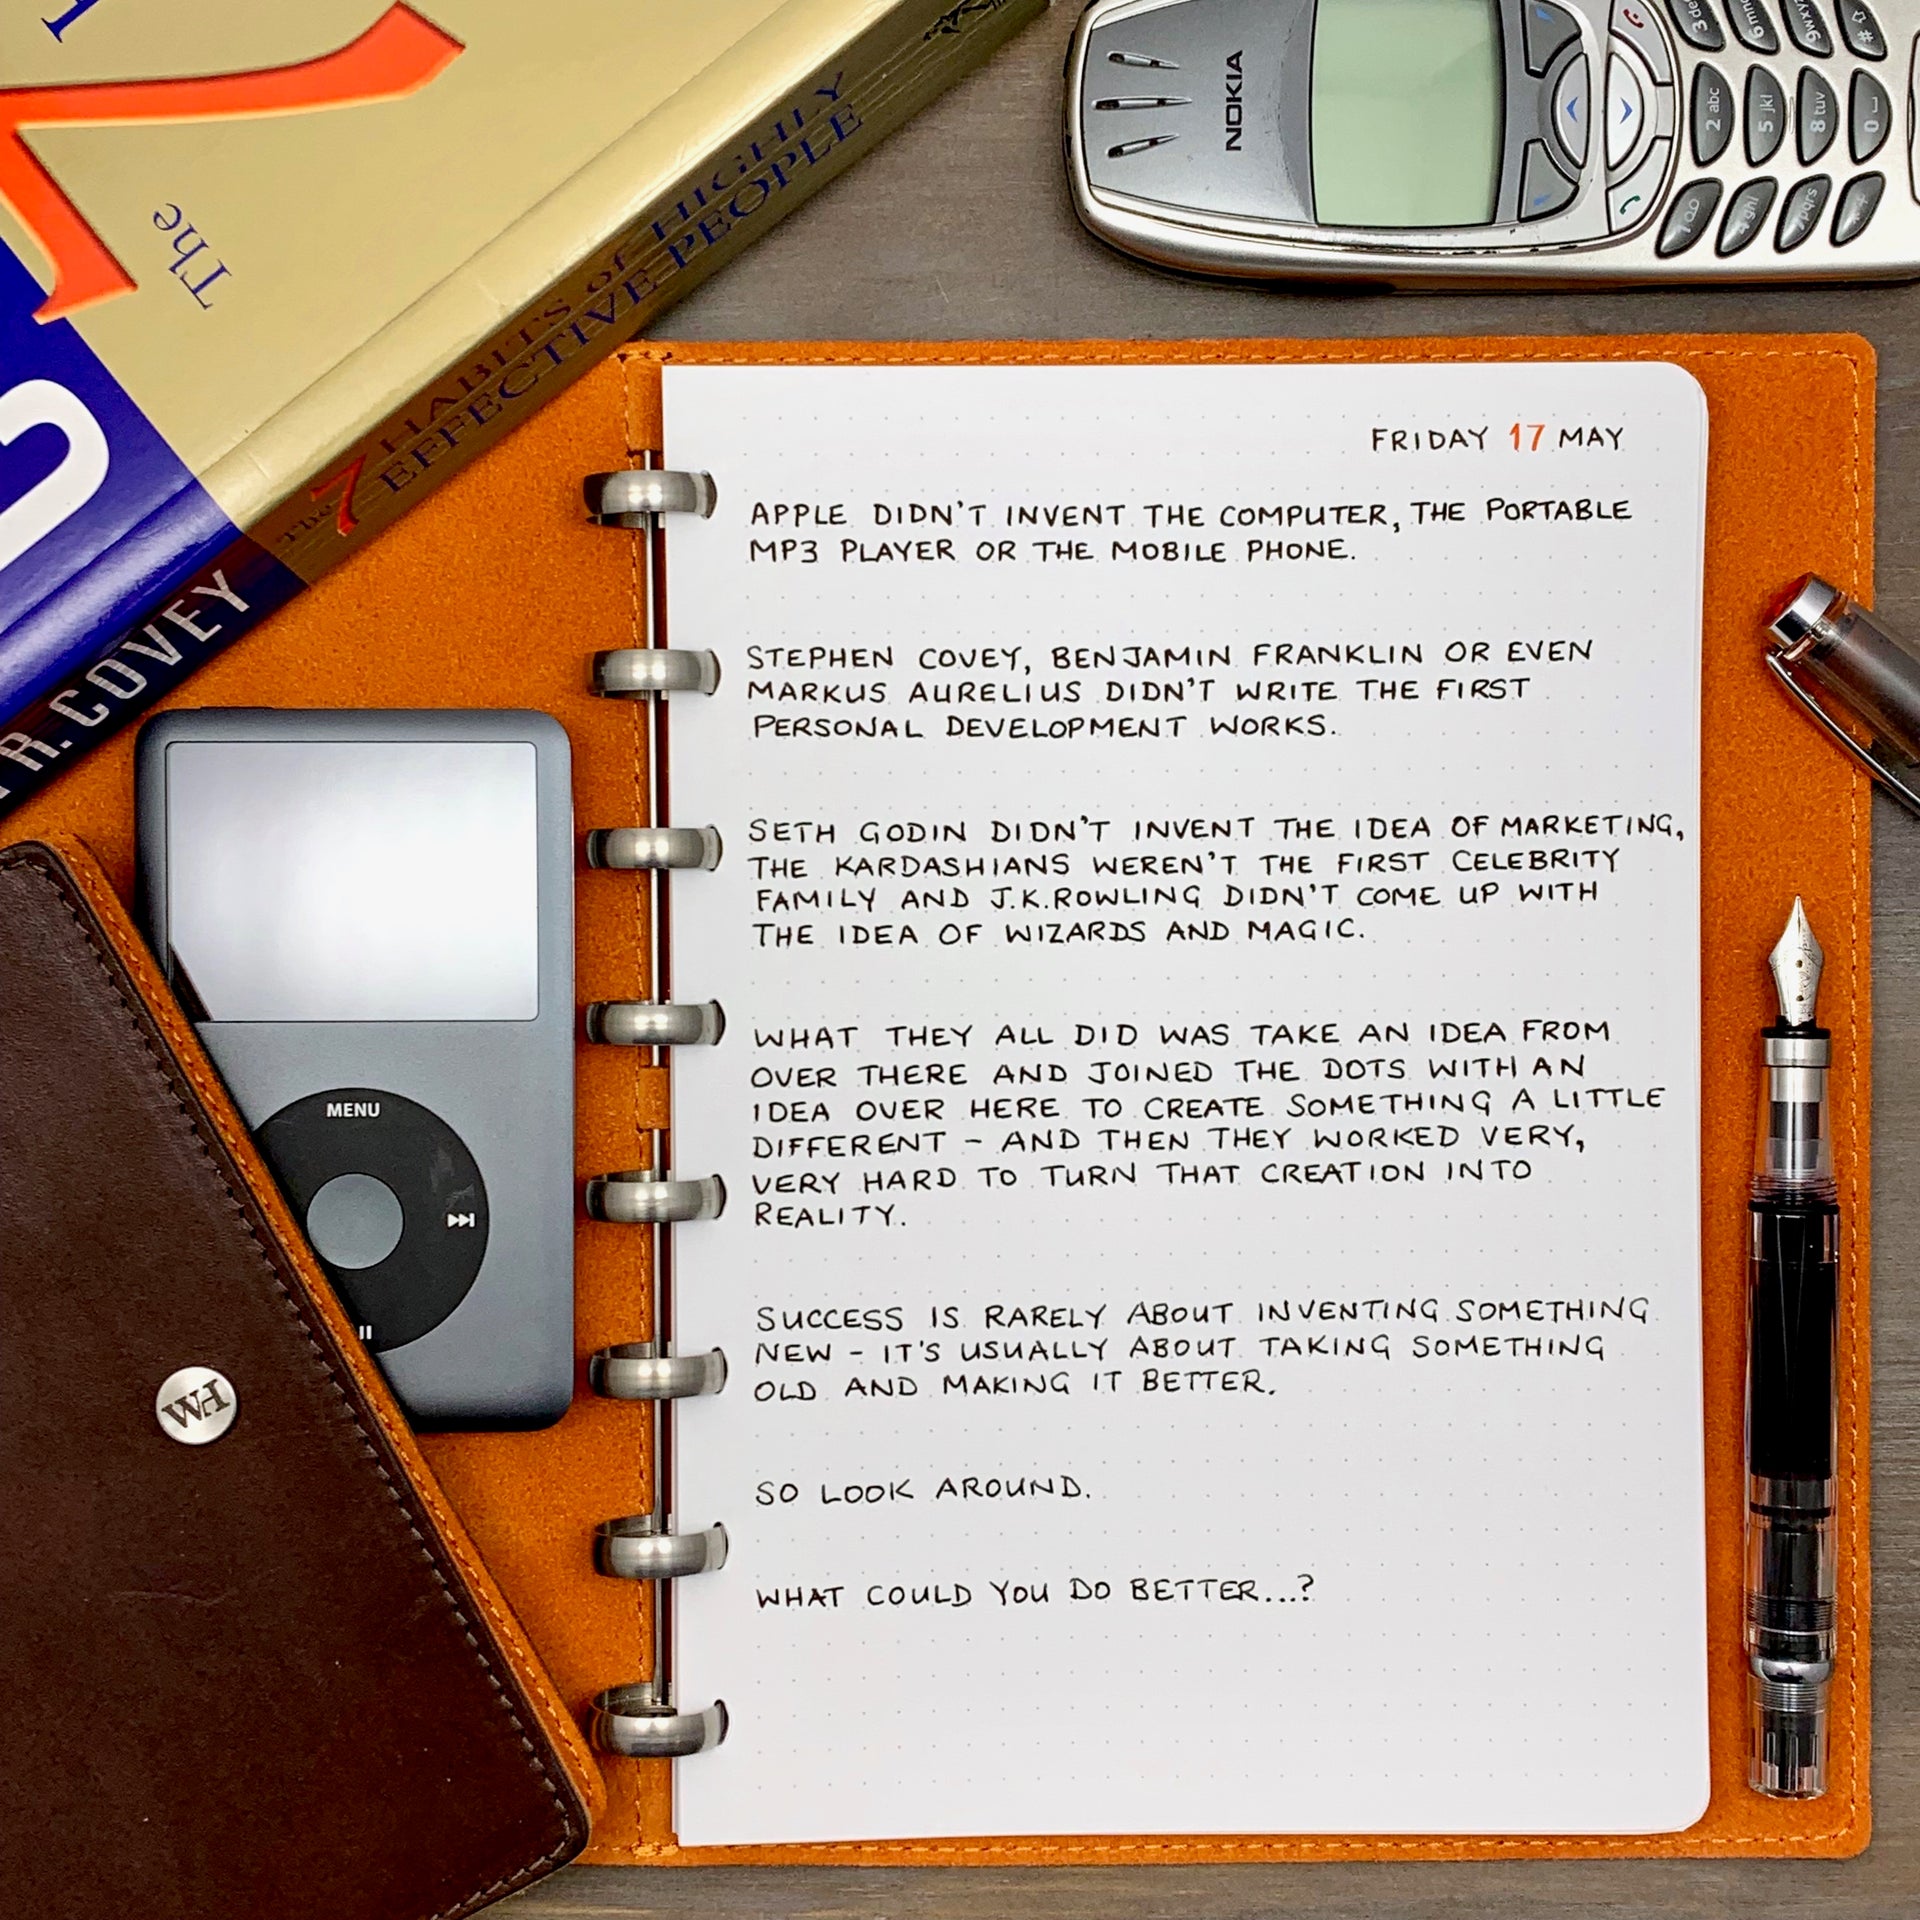 The
The 7 HABITS of HIGHLY
EFFECTIVE PEOPLE
R. COVEY
NOKIA
2 abc
5 jkl
8 tuv
0
4 ghi
7 pqrs
#
MENU
WH
FRIDAY 17 MAY
APPLE DIDN'T INVENT THE COMPUTER, THE PORTABLE
MP3 PLAYER OR THE MOBILE PHONE.
STEPHEN COVEY, BENJAMIN FRANKLIN OR EVEN
MARKUS AURELIUS DIDN'T WRITE THE FIRST
PERSONAL DEVELOPMENT WORKS.
SETH GODIN DIDN'T INVENT THE IDEA OF MARKETING,
THE KARDASHIANS WEREN'T THE FIRST CELEBRITY
FAMILY AND J.K.ROWLING DIDN'T COME UP WITH
THE IDEA OF WIZARDS AND MAGIC.
WHAT THEY ALL DID WAS TAKE AN IDEA FROM
OVER THERE AND JOINED THE DOTS WITH AN
IDEA OVER HERE TO CREATE SOMETHING A LITTLE
DIFFERENT - AND THEN THEY WORKED VERY,
VERY HARD TO TURN THAT CREATION INTO
REALITY.
SUCCESS IS RARELY ABOUT INVENTING SOMETHING
NEW - IT'S USUALLY ABOUT TAKING SOMETHING
OLD AND MAKING IT BETTER.
SO LOOK AROUND.
WHAT COULD YOU DO BETTER...?